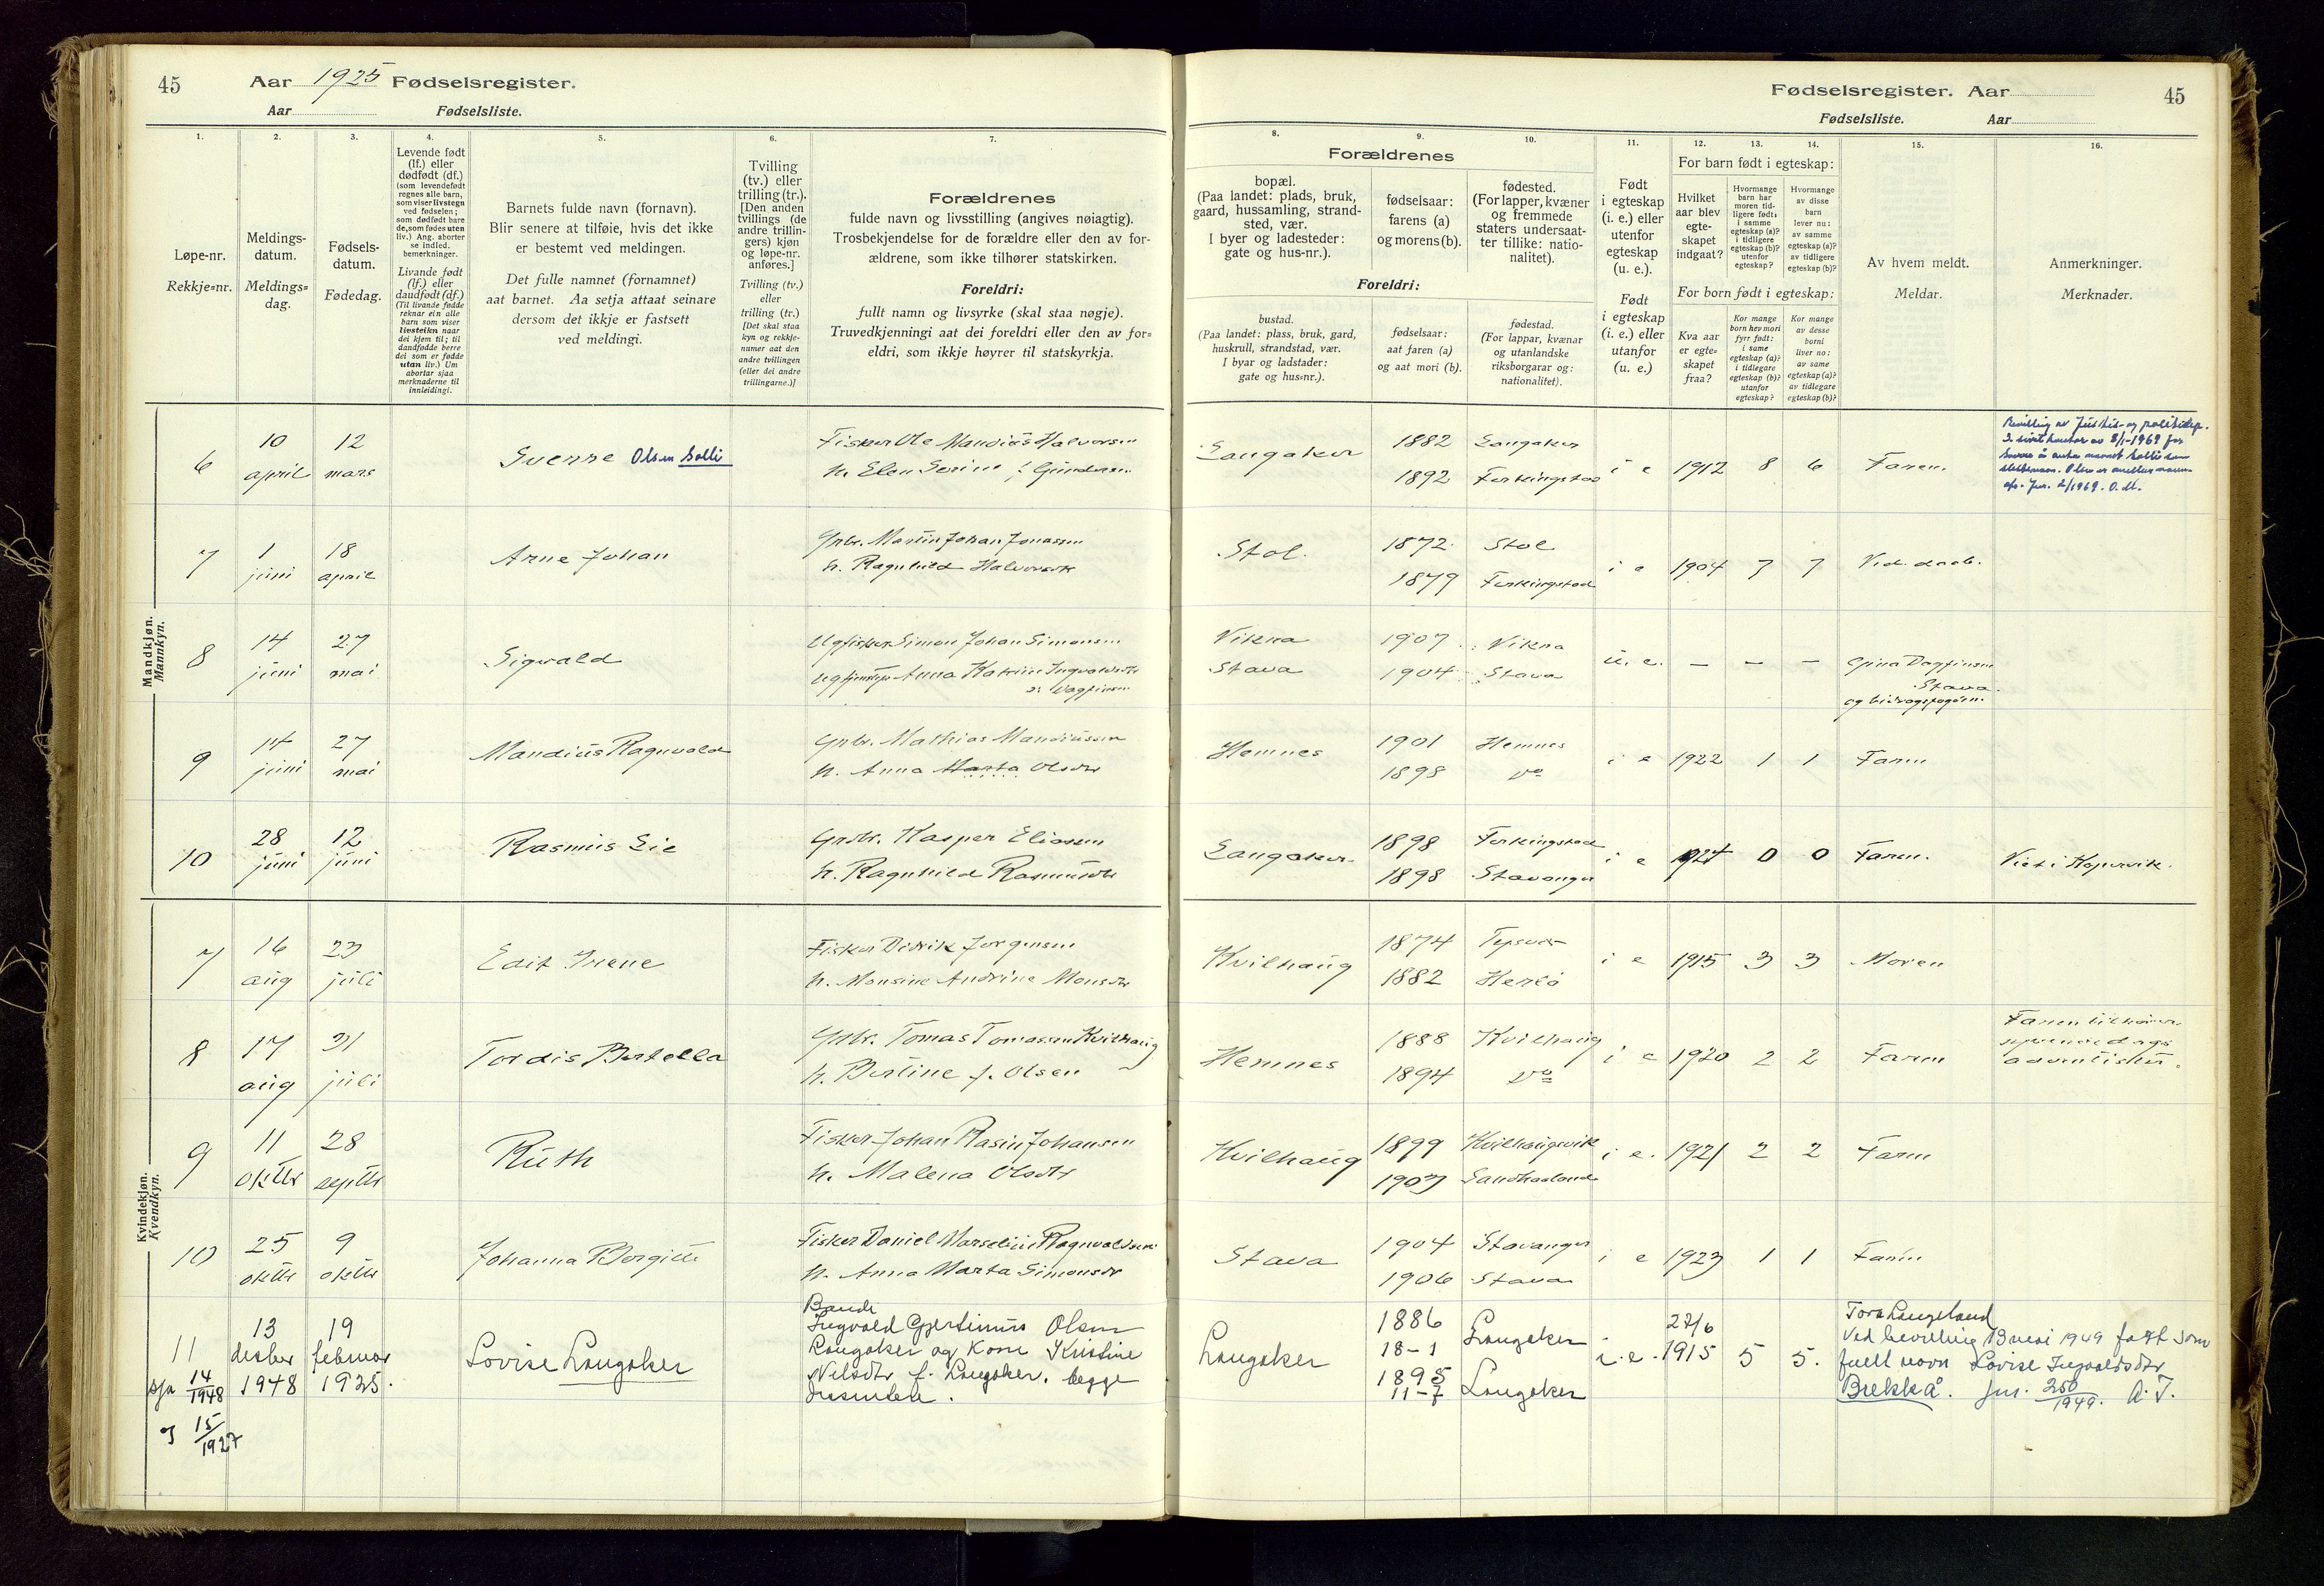 45 Aar 1925 Fødselsregister.
Aar Fødselsliste.
1.
Løpe-nr.
Rekkje-nr.
2.
Meldings-
datum.
Meldings-
dag.
3.
Fødsels-
datum.
Fødedag.
4.
Levende født
(lf.) eller
dødfødt (df.)
(som levendefødt
regnes alle barn,
som viser livstegn
ved fødselen;
som dødfødt bare
de, som fødes uten
liv.) Ang. aborter
se indled.
bemerkninger.
Livande født
(lf.) eller
daudfødt (df.)
(Til livande fødde
reknar ein alle
barn som viser
livsteikn naar
dei kjem til; til
daudfødde berre
dei som er fødde
utan liv.) Um
abortar sjaa
merknaderne til
innleidingi.
5.
Barnets fulde navn (fornavn).
Blir senere at tilføie, hvis det ikke
er bestemt ved meldingen.
Det fulle namnet (fornamnet)
aat barnet. Aa setja attaat seinare
dersom det ikkje er fastsett
ved meldingi.
6.
Tvilling
(tv.) eller
trilling (tr.).
[Den anden
tvillings (de
andre trillin-
gers) kjøn
og løpe-nr.
anføres.]
Tvilling (tv.)
eller
trilling (tr.)
[Det skal staa
kyn og rekkje-
numer aat den
andre tvillingen
(eller dei andre
trillingarne.)]
7.
Forældrenes
fulde navn og livsstilling (angives nøiagtig).
Trosbekjendelse for de forældre eller den av for-
ældrene, som ikke tilhører statskirken.
Foreldri:
fullt namn og livsyrke (skal staa nøgje).
Truvedkjenningi aat dei foreldri eller den av for-
eldri, som ikkje høyrer til statskyrkja.
Fødselsregister. Aar 45
Fødselsliste. Aar
8.
Forældrenes
bopæl.
(Paa landet: plads, bruk,
gaard, hussamling, strand-
sted, vær.
I byer og ladesteder:
gate og hus-nr.).
Foreldri:
bustad.
(Paa landet: plass, bruk, gard,
huskrull, strandstad, vær.
I byar og ladstader:
gate og hus-nr.).
9.
fødselsaar:
farens (a)
og morens (b).
fødselsaar:
aat faren (a)
og aat mori (b).
10.
fødested.
(For lapper, kvæner
og fremmede
staters undersaat-
ter tillike: natio-
nalitet).
fødestad.
(For lappar, kvænar
og utanlandske
riksborgarar og:
nationalitet).
11.
Født
i egteskap
(i. e.) eller
utenfor
egteskap
(u. e.).
Født
i egteskap
(i. e.) eller
utanfor
(u. e.)
12. 13. 14.
For barn født i egteskap:
Hvilket
aar blev
egte-
skapet
indgaat?
Hvormange
barn har
moren tid-
ligere født:
i samme
egteskap (a)?
i tidligere
egteskap (b)?
utenfor
egteskap?
Hvormange
av disse
barn
lever nu:
av samme
egteskap (a)?
av tidligere
egteskap (b)?
For born født i egteskap:
Kva aar
er egte-
skapet
fraa?
Kor mange
born hev mori
fyrr født:
i same
egteskap (a)?
i tidlegare
egteskap (b)?
utanfor
egteskap?
Kor mange
av desse
borni
liver no:
av same
egteskap (a)?
av tidlegare
egteskap (b)?
15.
Av hvem meldt.
Meldar.
16.
Anmerkninger.
Merknader.
Mandkjøn.
Mannkyn.
6 10 april 12 mars Sverre Olsen Solli Fisker Ole Mandiüs Halvorsen
h. Elen Serine f. Gundersen
Langaker 1882 Langaker
1892 Ferkingstad i e 1912 8 6 Faren.
Bevilling av Justis- og politidep.
7 1 juni 18 april Arne Johan Grbr. Martin Johan Jonassen
h. Ragnhild Halvorsdtr
Stol. 1872 Stol
1879 Ferkingstad i e 1904 7 7 Ved. daab.
8 14 juni 27 mai Sigvald Ugfisker Simon Johan Simonsen
Anna Katrine Ingvaldsdtr
Dagfinsen
Vikna 1907 Vikna
Stava 1904 Stava u. e. — — — Gina Dagfinsen
Stava.
og bidragsfogden.
9 14 juni 27 mai Mandius Ragnvald Grbr. Mathias Mandiussen
h. Anna Marta Olsdtr
Hemnes 1901 Hemnes
1898 Do i e 1922 1 1 Faren
10 28 juni 12 juni Rasmus Lie Grbr. Kasper Eliassen
h. Ragnhild Rasmusdtr
Langaker 1898 Ferkingstad
1898 Stavanger i e 1924 0 0 Faren. Viet i Kopervik.
Kvindekjøn.
Kvendkyn.
7 16 aug 23 juli Edit Irene Fisker Didrik Jørgensen
h. Monsine Andrine Monsdtr
Kvilhaug 1874 Tysvær
1882 Herlø i e 1915 3 3 Moren
8 17 aug 31 juli Tordis Bertella Grbr. Tomas Tomassen Kvilhaug
h. Bertine f. Olsen
Hemnes 1888 Kvilhaug
1894 Do i e 1920 2 2 Faren
Faren tilhører
syvende dags
adventister.
9 11 oktbr 28 septbr Ruth Fisker Johan Rasin Johansen
h. Malena Olsdtr
Kvilhaug 1899 Kvilhaugsvik
1903 Sandhaaland i e. 1921 2 2 Faren
10 25 oktbr 9 oktbr Johanna Borgitte Fisker Daniel Marselius Ragnvaldsen
h. Anna Marta Simonsdr
Stava 1904 Stavanger
1906 Stava i e 1923 1 1 Faren
11 13 desbr 1948 19 februar 1925. Lovise Langaker
sja 14/1948
og 15/1927
Bonde
Ingvald Gjertinius Olsen
Langaker og Kone Kristine
Nilsdtr f. Langaker, begge
dissentere.
Langaker 1886
18-1 Langaker
1895
11-7 Langaker i. e. 27/6
1915 5 5.
Tora Langeland
Ved bevilling 13 mai 1949 fått som
fullt navn Lovise Ingvaldsdtr
Brekkå. Jnr. 250/1949. A. T.